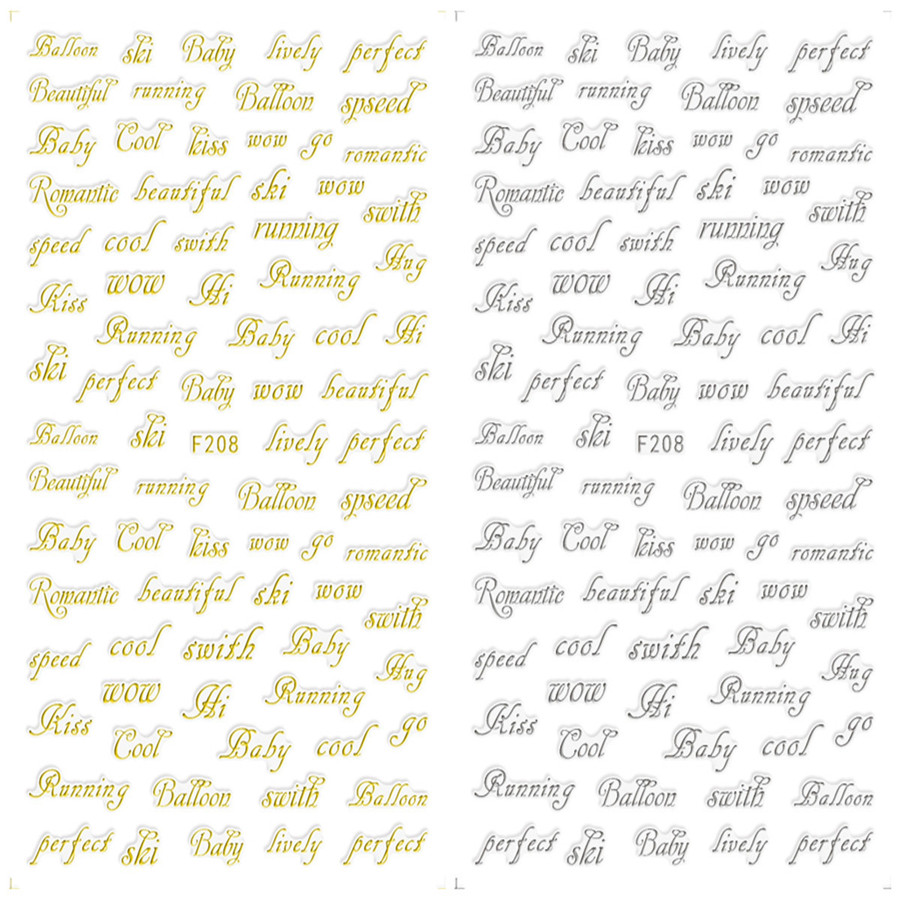 Balloon ski Baby lively perfect
Beautiful running Balloon spseed
Baby Cool kiss wow go romantic
Romantic beautiful ski wow swith
speed cool swith running Hug
Kiss wow Hi Running
Running Baby cool Hi
ski perfect Baby wow beautiful
Balloon ski F208 lively perfect
Beautiful running Balloon spseed
Baby Cool kiss wow go romantic
Romantic beautiful ski wow swith
speed cool swith Baby Hug
Kiss wow Hi Running go
Cool Baby cool
Running Balloon swith Balloon
perfect ski Baby lively perfect
Balloon ski Baby lively perfect
Beautiful running Balloon spseed
Baby Cool kiss wow go romantic
Romantic beautiful ski wow swith
speed cool swith running Hug
Kiss wow Hi Running
Running Baby cool Hi
ski perfect Baby wow beautiful
Balloon ski F208 lively perfect
Beautiful running Balloon spseed
Baby Cool kiss wow go romantic
Romantic beautiful ski wow swith
speed cool swith Baby Hug
Kiss wow Hi Running go
Cool Baby cool
Running Balloon swith Balloon
perfect ski Baby lively perfect